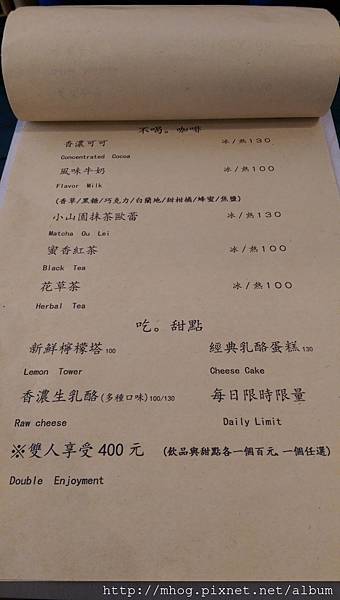 不喝。咖啡
香濃可可 冰/熱130
Concentrated Cocoa
風味牛奶 冰/熱100
Flavor Milk
(香草/黑糖/巧克力/白蘭地/甜柑橘/蜂蜜/焦鹽)
小山園抹茶歐蕾 冰/熱130
Matcha Ou Lei
蜜香紅茶 冰/熱100
Black Tea
花草茶 冰/熱100
Herbal Tea
吃。甜點
新鮮檸檬塔100 經典乳酪蛋糕130
Lemon Tower Cheese Cake
香濃生乳酪(多種口味)100/130 每日限時限量
Raw cheese Daily Limit
※雙人享受400元 (飲品與甜點各一個百元。一個任選)
Double Enjoyment
http://mhog.pixnet.net/album